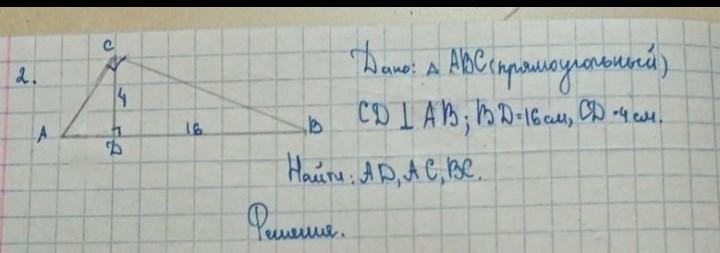 2.
C
4
A
D
16
B
Дано: △ ABC (прямоугольный)
CD ⊥ AB; BD=16см, CD=4см.
Найти: AD, AC, BC.
Решение.